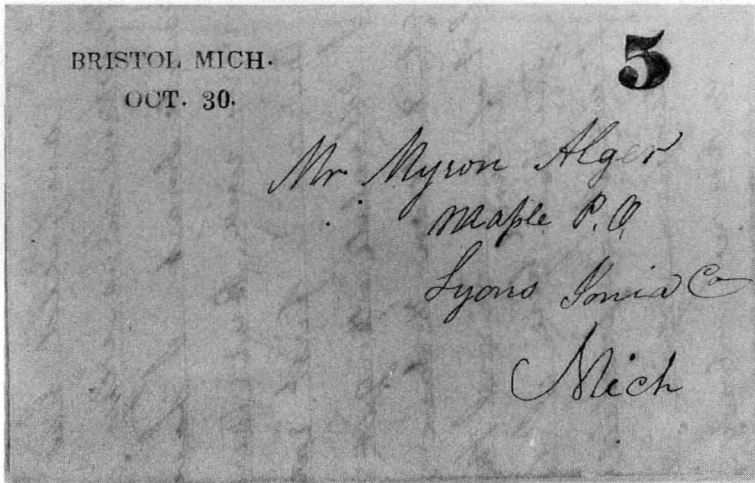 BRISTOL MICH.
OCT. 30.
5
Mr. Myron Alger
Maple P.O.
Lyons Ionia Co
Mich